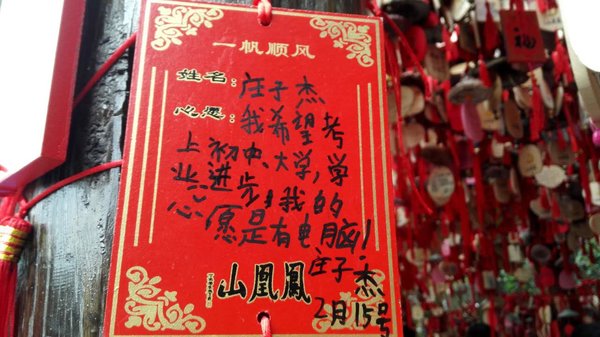 一帆顺风
姓名：庄子杰
心愿：我希望考
上初中、大学，学
业进步！我的
心愿是有电脑！
庄子杰
山凰鳳
2月15号
福